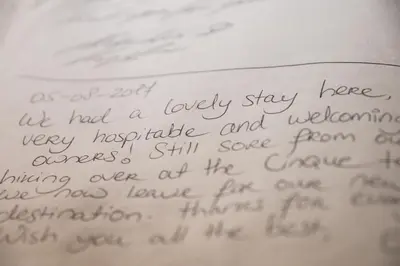 05-08-2017
We had a lovely stay here,
very hospitable and welcoming
owners! Still sore from our
hiking over at the Cinque te
we now leave for our new
destination. thanks for
wish you all the best,